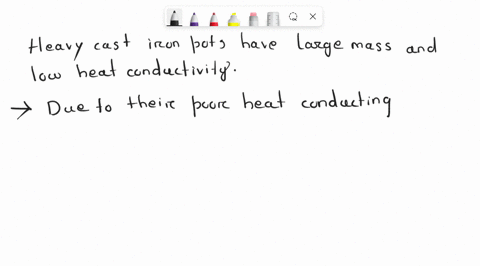 Heavy cast iron pots have large mass and
low heat conductivity.
→ Due to their poor heat conducting